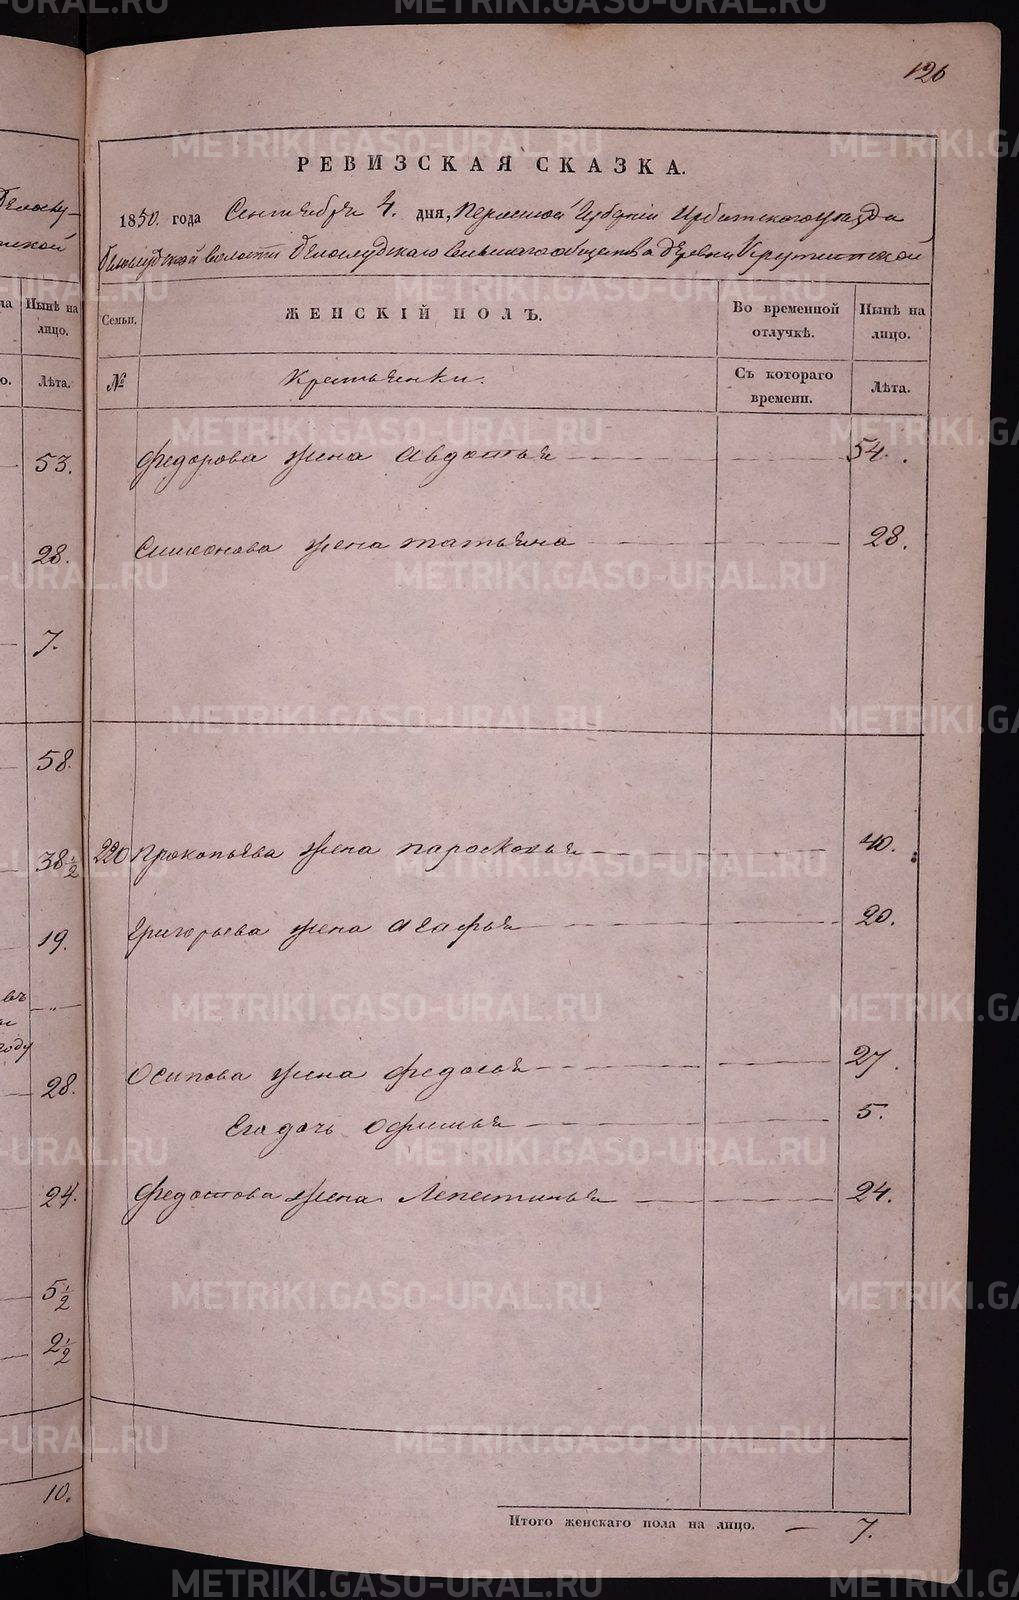 126
РЕВИЗСКАЯ СКАЗКА.
1850. года Сентября 4. дня, Пермской Губерніи Ирбитского уезда
Белослудской волости Белослудскаго сельскаго общества деревни Крутихинской
Семьи.
ЖЕНСКІЙ ПОЛЪ.
Во временной отлучкѣ.
Нынѣ на лицо.
№
Крестьянки.
Съ котораго времени.
Лѣта.
Федорова жена Авдотья 54.
Симеонова жена татьяна 28.
220 Прокопьева жена парасковья 40.
Григорьева жена агафья 20.
Осипова жена федосья 27.
Его дочь Офимья 5.
Федотова жена 24.
Итого женскаго пола на лицо. — 7.
Нынѣ на лицо.
Лѣта.
53.
28.
7.
58.
38½
19.
году
28.
24.
5½
2½
10.
METRIKI.GASO-URAL.RU